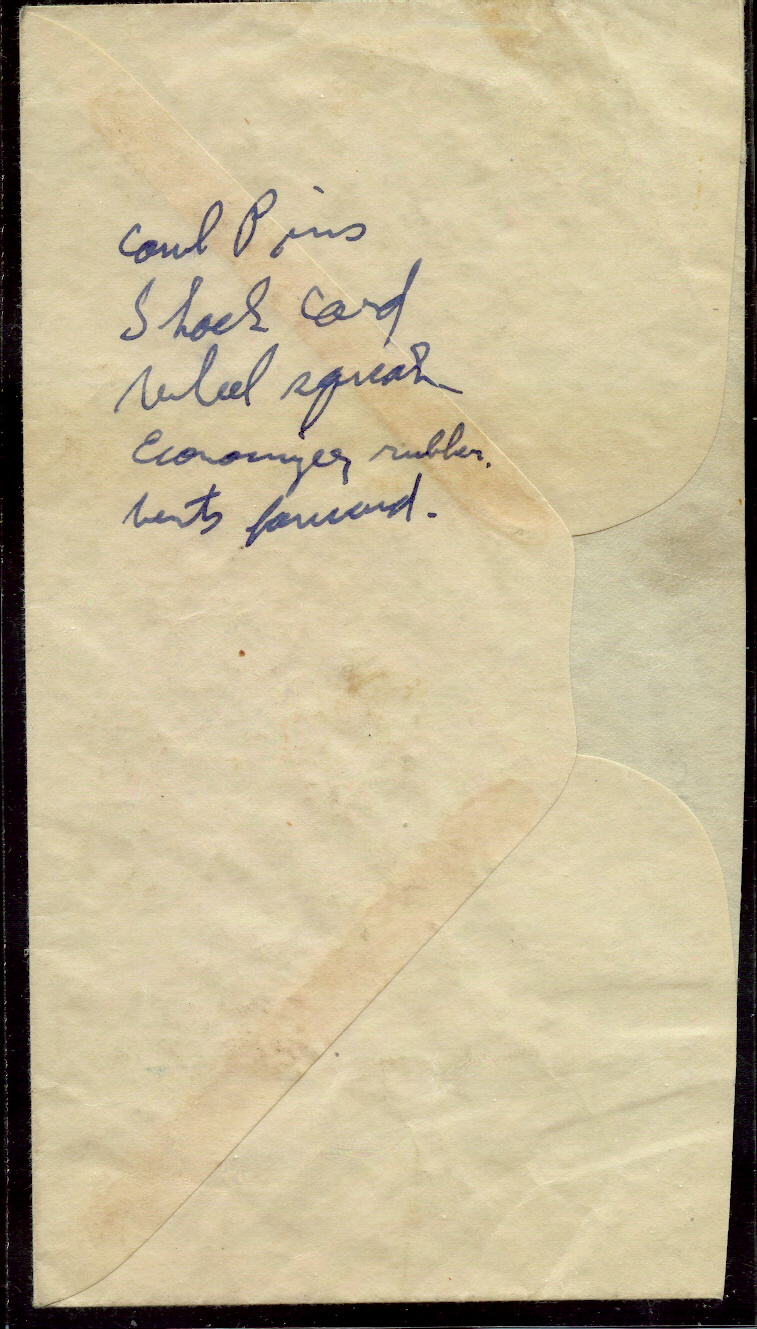 cowl Pins
Shock Cord
wheel squeak
Economizer rubber.
vents forward.